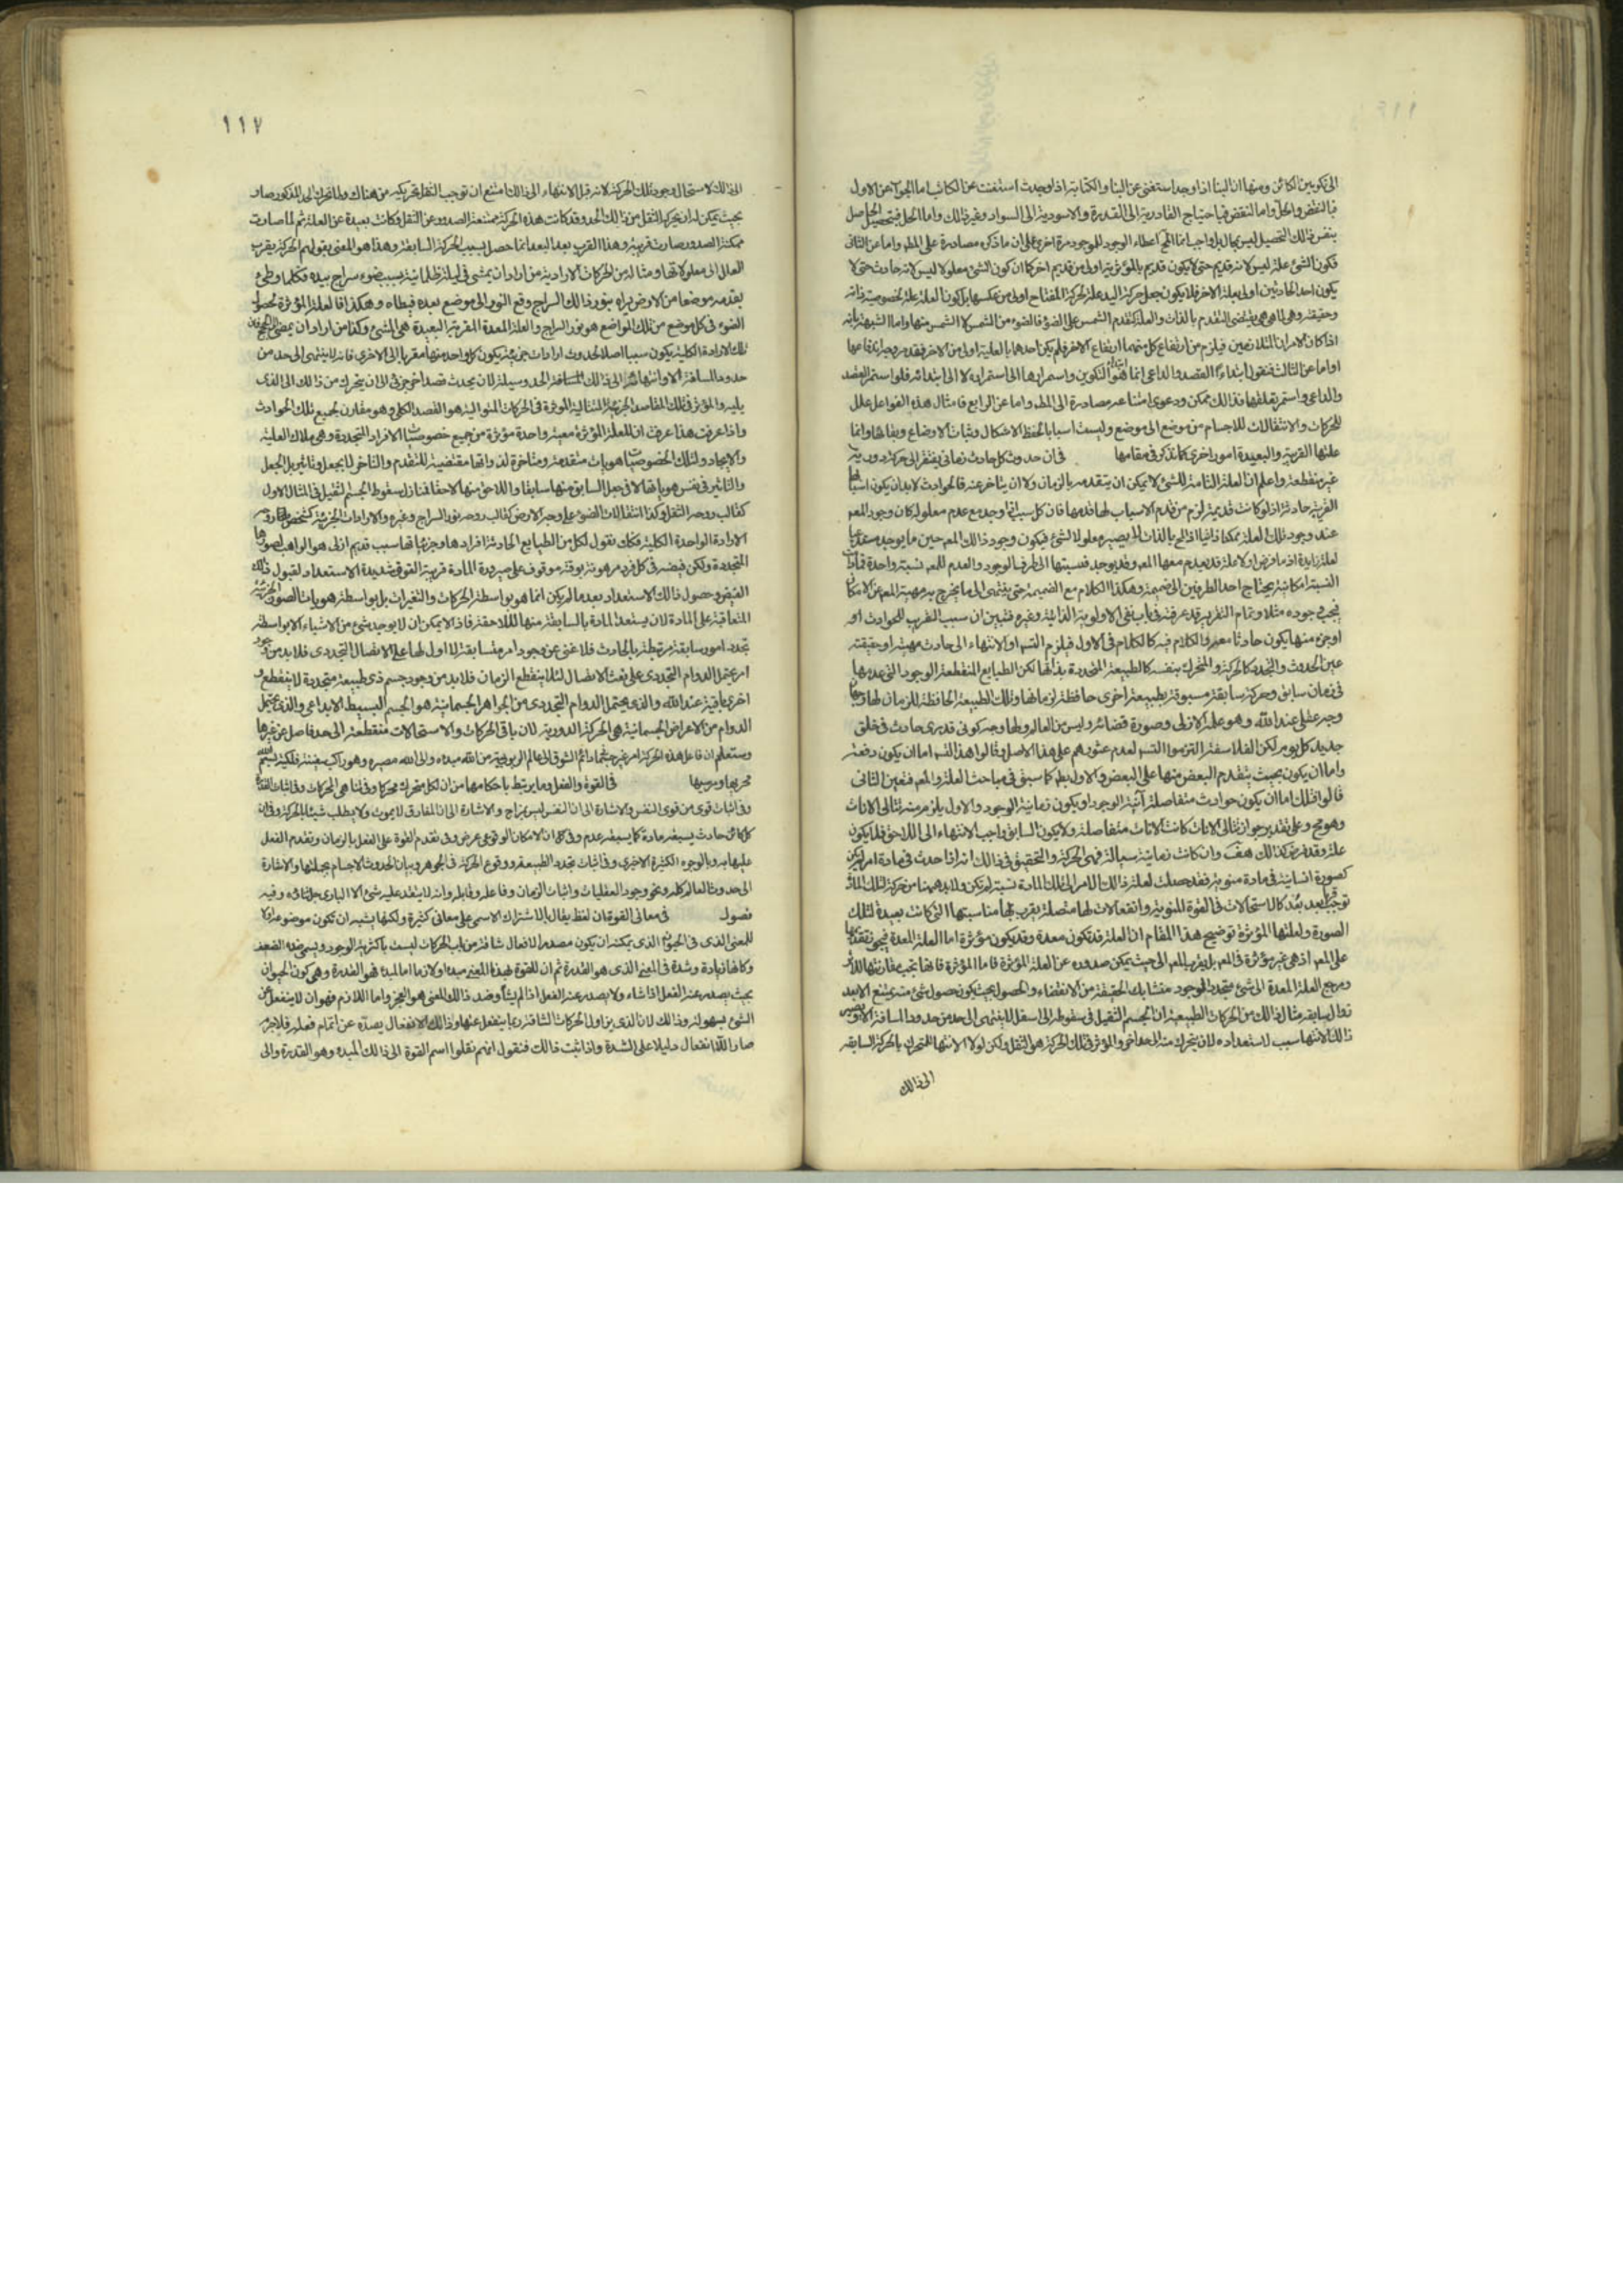 الى تكوين الكائن ومنها ان البناء اذا وجد استغنى عن البناء والكتابة اذا وجدت استغنت عن الكاتب اما الجواب عن الاول
فبالنقض والحل اما النقض فباحتياج القادرية الى القدرة والاسودية الى السواد وغير ذالك واما الحل فبتحصيل الحاصل
بنفس ذالك التحصيل ليس بمحال بل واجب انما المحال اعطاء الوجود للموجود مرة اخرى على ان ما ذكره مصادرة على المطـ واما عن الثانى
فكون الشئ علة ليس لانه قديم حتى لا يكون قديم بالمؤثرية اولى من قديم اخر كما ان كون الشئ معلولا ليس لانه حادث حتى لا
يكون احد الحادثين اولى بعلة الاخر فلا يكون جعل حركة اليد علة لحركة المفتاح اولى من عكسها بل كون العلة علة لخصوصية ذاته
وحقيقته وهى لما هى هى يقتضى التقدم بالذات والعلة كتقدم الشمس على الضوء فالضوء من الشمس لا الشمس منها واما الشبهة بانه
اذا كان الامران المتلازمين فيلزم من ارتفاع كل منهما ارتفاع الاخر فلم يكن احدهما بالعلية اولى من الاخر فقد مر وجه اندفاعها
واما عن الثالث فنقول ابتداء القصد والداعى انما هو التكوين واستمرارها الى استمراره لا الى ابتدائه فلو استمر القصد
والداعى واستمر تعلقها فذالك ممكن ودعوى امتناعه مصادرة الى المطـ واما عن الرابع فامثال هذه الفواعل علل
للحركات والانتقالات للاجسام من موضع الى موضع وليست اسبابا لحفظ الاشكال وثبات الاوضاع وبقائها وانما
علتها القريبة والبعيدة امور اخرى كما نذكر فى مقامها فى ان حدوث كل حادث زمانى يفتقر الى حركة دورية
غير منقطعة واعلم ان العلة التامة للشئ لا يمكن ان يتقدمه بالزمان ولا ان يتاخر عنه فالحوادث لابد ان يكون اسبابها
القريبة حادثة اذ لو كانت قديمة لزم من قدم الاسباب لها قدمها فان كل سبب اذا وجد مع عدم معلوله كان وجود المعـ
عند وجود تلك العلة ممكنا
لعلة زايدة اذ ما فرض اولا علة قد يعدم معها المعـ وقد يوجد فنسبتها الى طرفى الوجود والعدم للمعـ نسبة واحدة فما دامت
النسبة امكانية يحتاج احد الطرفين الى ضميمة وهكذا الكلام مع الضميمة حتى ينتهى الى ما يخرج به مهية المعـ عن الامكان
فيجب وجوده مثلا وتمام التقرير قد عرفته فى باب نفى الاولوية الذاتية وغيره فتبين ان سبب القريب للحوادث امر
او جزء منها يكون حادثا معه والكلام فيه كالكلام فى الاول فيلزم التسـ او الانتهاء الى حادث مهيته او حقيقته
عين الحدوث والتجدد كالحركة والمتحرك بنفسه كالطبيعة المتجددة بذاتها لكن الطبايع المنقطعة الوجود التى عدمها
فى زمان سابق وحركة سابقة مسبوقة بطبيعة اخرى حافظة لزمانها وتلك الطبيعة الحافظة للزمان لها وجهان
وجه عقلى عند الله وهو علمه الازلى وصورة قضائه وليس من العالم ولها وجه كونى قدرى حادث فى خلق
جديد كل يوم لكن الفلاسفة التزموا التسـ لعدم عثورهم على هذا الاصل وقالوا هذا التسـ اما ان يكون دفعة
واما ان يكون بحيث يتقدم البعض منها على البعض والاول بطـ كما سبق فى مباحث العلة والمعـ فتعين الثانى
قالوا فتلك اما ان يكون حوادث متفاصلة آنية الوجود او يكون زمانية الوجود والاول يلزم منه تتالى الانات
وهو مح وعلى تقدير جواز تتالى الانات كانت الانات متفاصلة ولا يكون السابق واجب الانتهاء الى اللاحق فلا يكون
علة وقد فرض كذالك هف وان كانت زمانية سيالة فهى الحركة والتحقيق فى ذالك انه اذا حدث فى مادة امر لم يكن
كصورة انسانية فى مادة منوية فقد حصلت لعلة ذالك الامر الى تلك المادة نسبة لم تكن ولابد هيهنا من حركة لتلك المادة
توجب قربا بعد بعد كالاستحالات فى القوة المنوية وانفعالات لها متصلة يقرب لها مناسبتها التى كانت بعيدة لتلك
الصورة ولعلتها المؤثرة توضيح هذا المقام ان العلة قد تكون معدة وقد يكون مؤثرة اما العلة المعدة فيجوز تقدمها
على المعـ اذ هى غير مؤثرة فى المعـ بل يقرب المعـ الى حيث يمكن صدوره عن العلة المؤثرة فاما المؤثرة فانها يجب مقارنتها للاثر
ومرجع العلة المعدة الى شئ متجدد الوجود متشابك الحقيقة من الانقضاء والحصول بحيث يكون حصول شئ منه يمتنع الا بعد
زوال سابقه مثال ذالك من الحركات الطبيعية ان الجسم الثقيل فى سقوطه الى اسفل لا ينتهى الى حد من حدود المسافة الا ويصير
ذالك الانتهاء سبب لاستعداده لان يتحرك منه الى حد اخر والمؤثر فى تلك الحركة هو الثقل ولكن لولا الانتهاء للمتحرك بالحركة السابقه
الى ذالك
١١٧
الى ذالك لاستحال وجود تلك الحركة لانه قبل الانتهاء الى ذالك امتنع ان توجب الثقل تحريكه من هناك ولما تحرك الى المذكور صار
بحيث يمكن له ان يحركه الثقل من ذالك الحد وقد كانت هذه الحركة ممتنعة الصدور عن الثقل وكانت بعيدة عن العلة ثم لما صارت
ممكنة الصدور صارت قريبة وهذا القرب بعد البعد انما حصل بسبب الحركة السابقة وهذا هو المعنى بقولهم الحركة يقرب
العلل الى معلولاتها ومثاله من الحركات الارادية من اراد ان يمشى فى ليلة ظلمانية بسبب ضوء سراج بيده فكلما وطئ
بقدمه موضعا من الارض يراه بنور ذالك السراج وقع النور الى موضع بعده فيطاه وهكذا فالعلة المؤثرة لحصول
الضوء فى كل موضع من تلك المواضع هو نور السراج والعلة المعدة المقربة البعيدة هى المشى وكذا من اراد ان يمضى الى الحج فان
تلك الارادة الكلية يكون سببا اصلا لحدوث ارادات جزئية يكون كل واحد منها مقربا الى الاخرى فانه لا ينتهى الى حد من
حدود المسافة الا وانتهائه الى ذالك الحد وسيلة لان يحدث قصد اخر جزئى الى ان يتحرك من ذالك الى الذى
يليه والمؤثر فى تلك المقاصد الجزئية المتتالية الموثرة فى الحركات المتوالية هو القصد الكلى وهو مقارن لجميع تلك الحوادث
واذا عرفت هذا عرفت ان للعلة المؤثرة معية واحدة مؤثرة من جميع خصوصيات الافراد المتجددة وهى ملاك العلية
والايجاد ولتلك الخصوصيات هويات متقدمة ومتاخرة لذواتها مقتضية للتقدم والتاخر لا بجعل وتاثير بل الجعل
والتاثير فى نفس هوياتها لا فى جعل السابق منها سابقا واللاحق منها لاحقا فنازل سقوط الجسم الثقيل فى المثال الاول
كقالب روحه الثقل وكذا انتقالات الضوء على وجه الارض كقالب روحه نور السراج وغيره والارادات الجزئية كشخص روحه
الارادة الواحدة الكلية فكك نقول لكل من الطبايع الحادثة افرادها وجزئياتها سبب قديم ازلى هو الواهب لصورها
المتجددة ولكن فيضه فى كل فرد مرهونة بوقته موقوف على صيرورة المادة قريبة القوة شديدة الاستعداد لقبول ذلك
الفيض وحصول ذالك الاستعداد بعد ما لم يكن انما هو بواسطة الحركات والتغيرات بل بواسطة هويات الصور الجزئية
المتعاقبة على المادة لان يستعد المادة بالسابقة منها للاحقة فاذا لا يمكن ان لا يوجد شئ من الاشياء الا بواسطة
تجدد امور سابقة مرتبطة بالحادث فلا غنى عن وجود امر متسابقة لا اول لها على الاتصال التجددى فلابد من وجود
امر يحتمل الدوام التجددى على نعت الاتصال لئلا ينقطع الزمان فلابد من وجود جسم ذى طبيعة متجددة لا ينقطع و
اخرى باقية عند الله والذى يحتمل الدوام التجددى من الجواهر الجسمانية هو الجسم البسيط الابداعى والذى يحتمل
الدوام من الاعراض الجسمانية هى الحركة الدورية لان باقى الحركات والاستحالات منقطعة الى حد فاصل عن غيرها
وستعلم ان فاعل هذه الحركة امر غير متناه دائم الشوق الى عالم الربوبية من الله مبدءه والى الله مصيره وهو راكب سفينة فلكية بسم الله
مجريها ومرسيها فى القوة والفعل وما يرتبط باحكامها من ان لكل متحرك محركا وفى تناهى المحركات وفى اثبات
وفى اثبات قوى من قوى النفس والاشارة الى ان النفس ليس بمزاج والاشارة الى ان المفارق لا يموت ولا يطلب شيئا بالحركة وفى ان
كل كائن حادث يسبقه مادة كما يسبقه عدم وفى ان الامكان الوقوعى عرض وفى تقدم القوة على الفعل بالزمان وتقدم الفعل
عليها به وبالوجوه الكثيرة الاخرى وفى اثبات تجدد الطبيعة ووقوع الحركة فى الجوهر وبيان الحدوث للاجسام بجملتها والاشارة
الى حدوث العالم كله ونحو وجود العقليات واثبات الزمان وفاعله وقابله وانه لا يتقدم عليه شئ الا البارى جل ثناؤه وفيه
فصول فى معانى القوة ان لفظ يقال بالاشتراك الاسمى على معانى كثيرة ولكنها يشبه ان تكون موضوعة اولا
للمعنى الذى فى الحيوان الذى يمكنه ان يكون مصدرا لافعال شاقة من باب الحركات ليست باكثرية الوجود ويسمى ضده الضعف
وكانها زيادة وشدة فى المعنى الذى هو القدرة ثم ان للقوة بهذا المعنى مبدء ولازما اما المبدء فهو القدرة وهى كون الحيوان
بحيث يصدر عنه الفعل اذا شاء ولا يصدر عنه الفعل اذا لم يشأ وضد ذالك المعنى هو العجز واما اللازم فهو ان لا ينفعل عن
الشئ بسهولة وذالك لان الذى يزاول الحركات الشاقة ربما ينفعل عنها وذالك الانفعال يصده عن اتمام فعله فلا جرم
صار اللاانفعال دليلا على الشدة واذا ثبت ذالك فنقول انهم نقلوا اسم القوة الى ذالك المبدء وهو القدرة والى